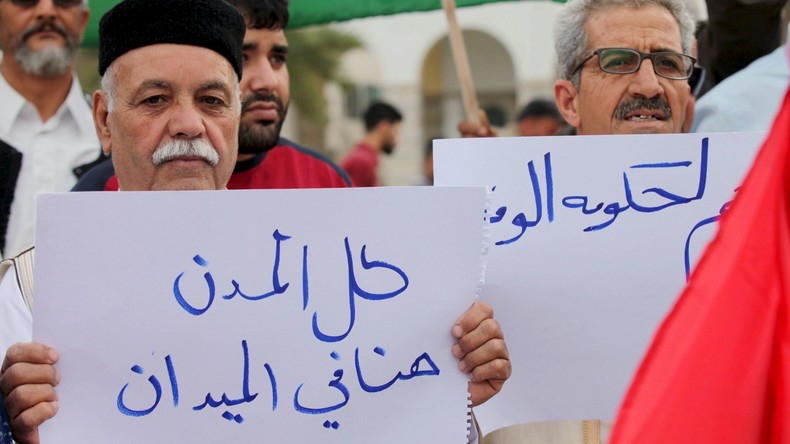 كل المدن
هنا في الميدان
لحكومه